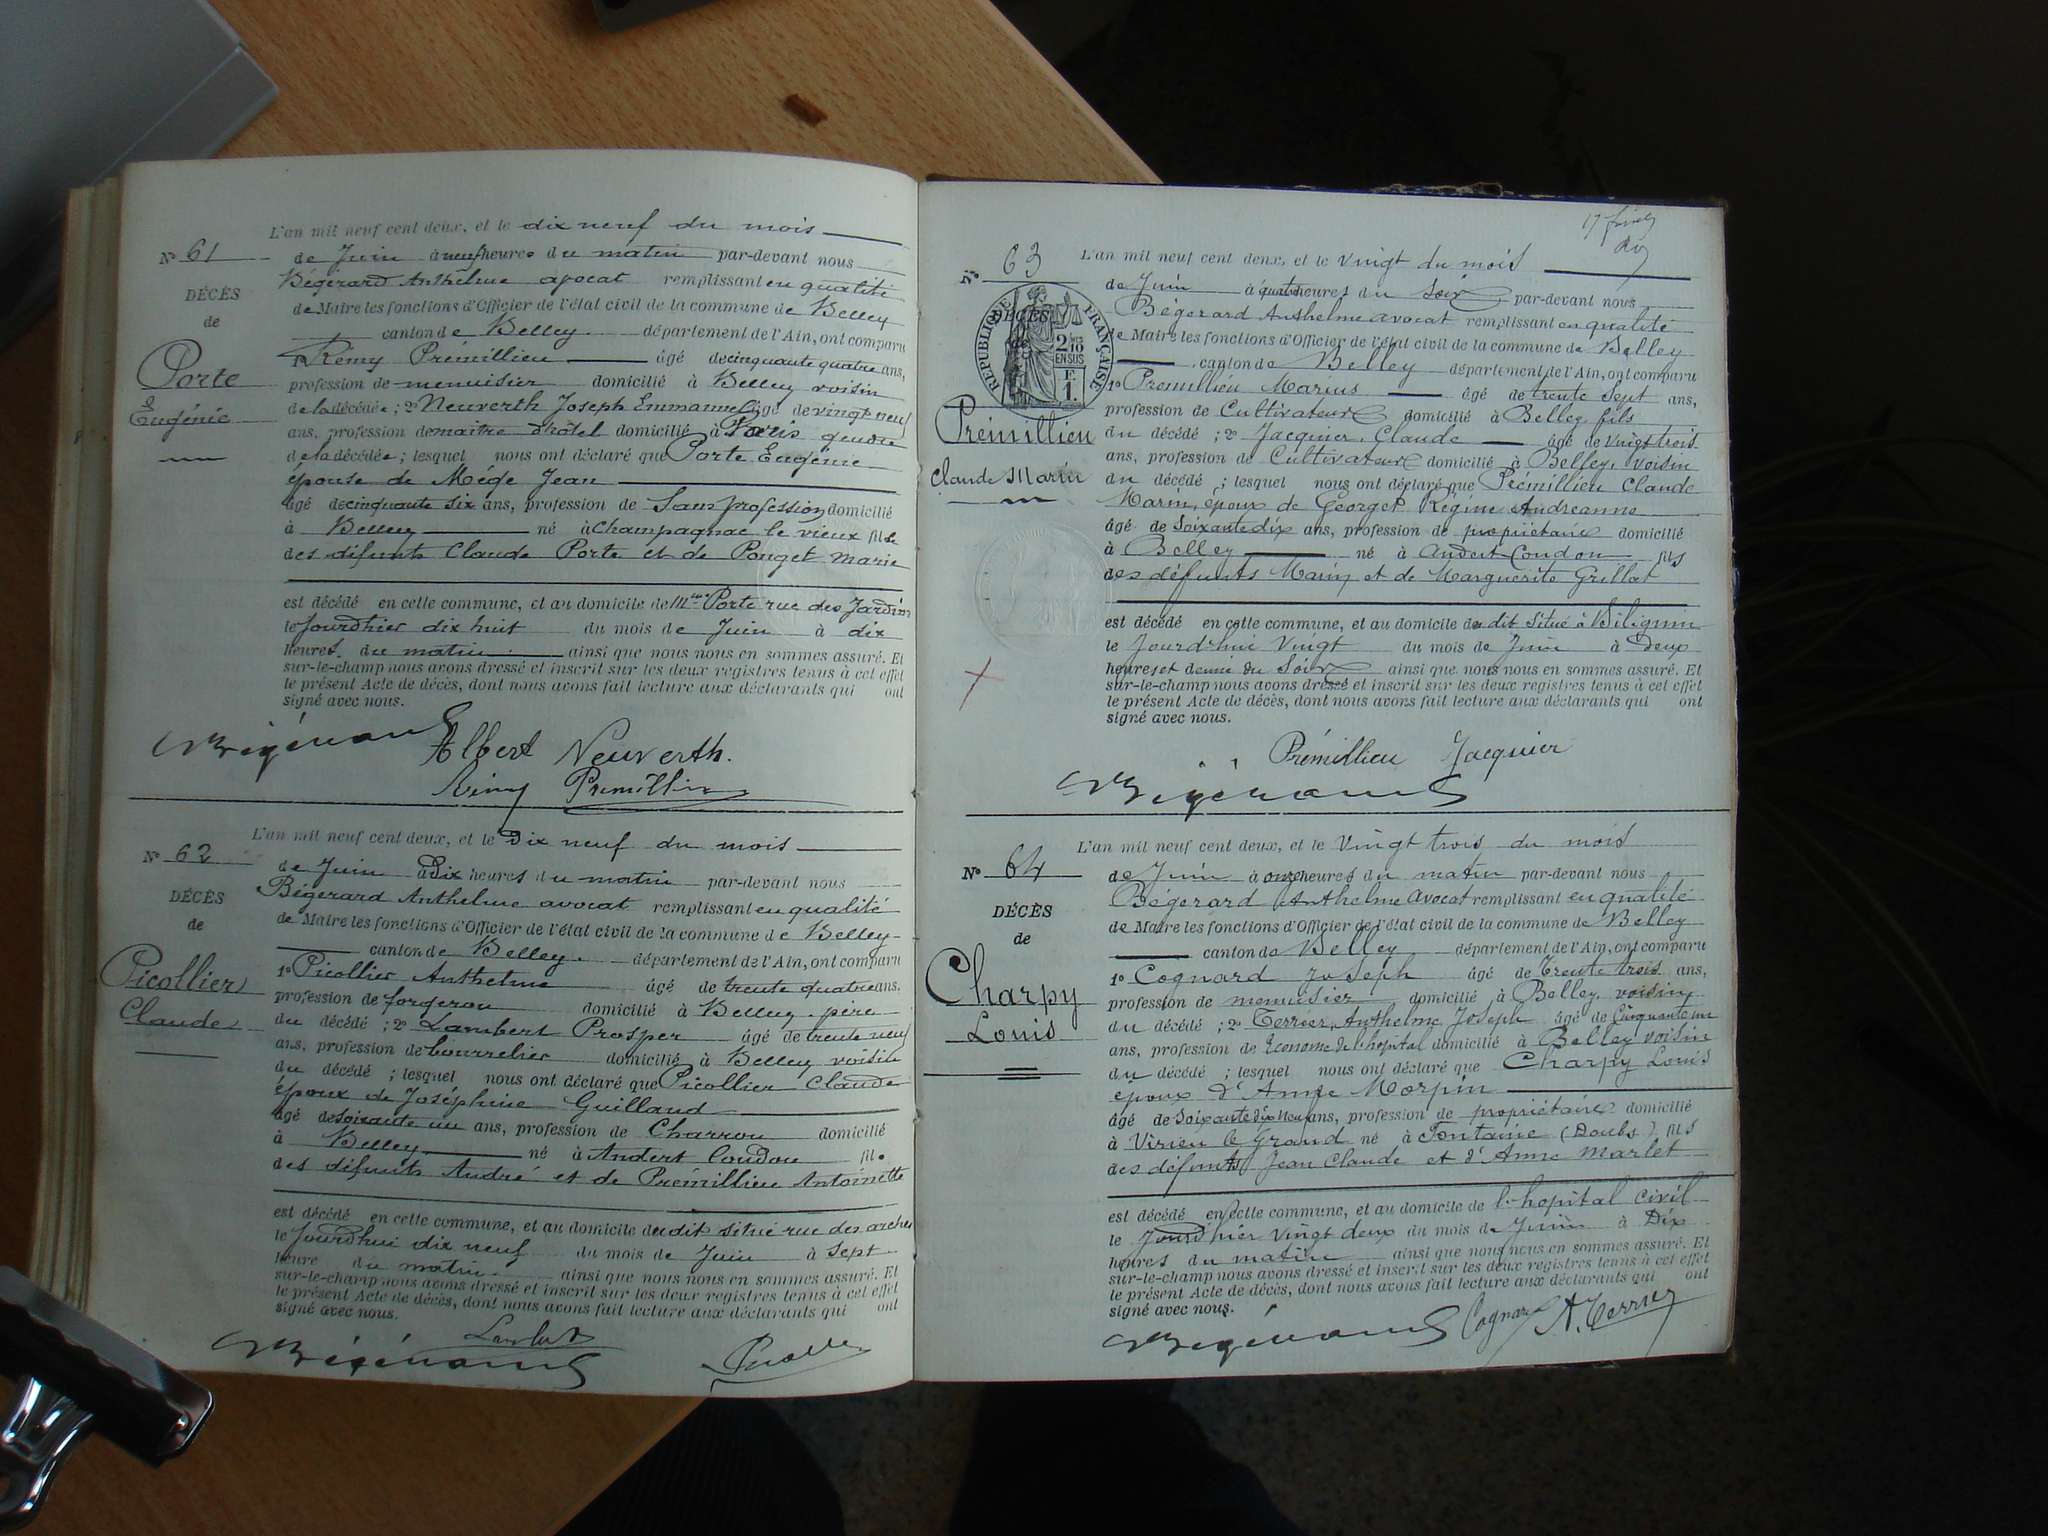 L'an mil neuf cent deux, et le dix neuf du mois
N° 61
de Juin à neuf heures du matin par-devant nous
Bégerard Anthelme avocat remplissant en qualité
DÉCÈS
de Maire les fonctions d'Officier de l'état civil de la commune de Belley
de
canton de Belley département de l'Ain, ont comparu
Porte
1° Rémy Prémillieu âgé de cinquante quatre ans,
profession de menuisier domicilié à Belley voisin
Eugénie
de la décédée ; 2° Neuverth Joseph Emmanuel âgé de vingt neuf
ans, profession de maître d'hôtel domicilié à Paris gendre
de la décédée ; lesquel nous ont déclaré que Porte Eugénie
épouse de Mége Jean
âgé de cinquante six ans, profession de Sans profession domicilié
à Belley né à Champagnac le vieux fille
des défunts Claude Porte et de Pouget Marie
est décédé en cette commune, et au domicile de Mme Porte rue des Jardins
le jourdhier dix huit du mois de Juin à dix
heures du matin ainsi que nous nous en sommes assuré. Et
sur-le-champ nous avons dressé et inscrit sur les deux registres tenus à cet effet
le présent Acte de décès, dont nous avons fait lecture aux déclarants qui ont
signé avec nous.
Bégerard Albert Neuverth.
Rémy Prémillieu
L'an mil neuf cent deux, et le Dix neuf du mois
N° 62
de Juin à Dix heures du matin par-devant nous
Bégerard Anthelme avocat remplissant en qualité
DÉCÈS
de Maire les fonctions d'Officier de l'état civil de la commune de Belley
de
canton de Belley. département de l'Ain, ont comparu
Picollier
1° Picollier Anthelme âgé de trente quatre ans,
profession de forgeron domicilié à Belley père
Claude
du décédé ; 2° Lambert Prosper âgé de trente neuf
ans, profession de bourrelier domicilié à Belley voisin
du décédé ; lesquel nous ont déclaré que Picollier Claude
époux de Joséphine Guilland
âgé de soixante un ans, profession de Charron domicilié
à Belley né à Andert Condon fils
des défunts André et de Prémillieu Antoinette
est décédé en cette commune, et au domicile du dit situé rue des arches
le Jourdhui dix neuf du mois de Juin à sept
heure du matin ainsi que nous nous en sommes assuré. Et
sur-le-champ nous avons dressé et inscrit sur les deux registres tenus à cet effet
le présent Acte de décès, dont nous avons fait lecture aux déclarants qui ont
signé avec nous.
Lambert
Bégerard
17
N° 63
L'an mil neuf cent deux, et le vingt du mois
de Juin à quatre heures du Soir par-devant nous
Bégerard Anthelme avocat remplissant en qualité
DÉCÈS
de
RÉPUBLIQUE FRANÇAISE
2/10
EN SUS
E
1.
de Maire les fonctions d'Officier de l'état civil de la commune de Belley
canton de Belley département de l'Ain, ont comparu
1° Prémillieu Marius âgé de trente sept ans,
profession de Cultivateur domicilié à Belley fils
Prémillieu
du décédé ; 2° Jacquier Claude âgé de vingt trois
ans, profession de Cultivateur domicilié à Belley, voisin
Claude Marin
du décédé ; lesquel nous ont déclaré que Prémillieu Claude
Marin, époux de Georget Régine Andreanne
âgé de soixante dix ans, profession de propriétaire domicilié
à Belley né à Andert Condon fils
des défunts Marin et de Marguerite Grillat
est décédé en cette commune, et au domicile du dit situé à Bilignin
le Jourd'hui vingt du mois de Juin à Deux
heures et demie du Soir ainsi que nous nous en sommes assuré. Et
sur-le-champ nous avons dressé et inscrit sur les deux registres tenus à cet effet
le présent Acte de décès, dont nous avons fait lecture aux déclarants qui ont
signé avec nous.
Prémillieu Jacquier
Bégerard
L'an mil neuf cent deux, et le vingt trois du mois
N° 64
de Juin à onze heures du matin par-devant nous
Bégerard Anthelme avocat remplissant en qualité
DÉCÈS
de Maire les fonctions d'Officier de l'état civil de la commune de Belley
de
canton de Belley département de l'Ain, ont comparu
Charpy
1° Cognard Joseph âgé de Trente trois ans,
profession de menuisier domicilié à Belley voisin
Louis
du décédé ; 2° Terrier Anthelme Joseph âgé de Cinquante un
ans, profession de Econome de l'hopital domicilié à Belley voisin
du décédé ; lesquel nous ont déclaré que Charpy Louis
époux d'Anne Morpin
âgé de Soixante dix neuf ans, profession de propriétaire domicilié
à Virieu le Grand né à Fontaine (Doubs) fils
des défunts Jean Claude et d'Anne Marlet
est décédé en cette commune, et au domicile de l'hopital civil
le Jourdhier vingt deux du mois de Juin à Dix
heures du matin ainsi que nous nous en sommes assuré. Et
sur-le-champ nous avons dressé et inscrit sur les deux registres tenus à cet effet
le présent Acte de décès, dont nous avons fait lecture aux déclarants qui ont
signé avec nous.
Bégerard Cognard A. Terrier